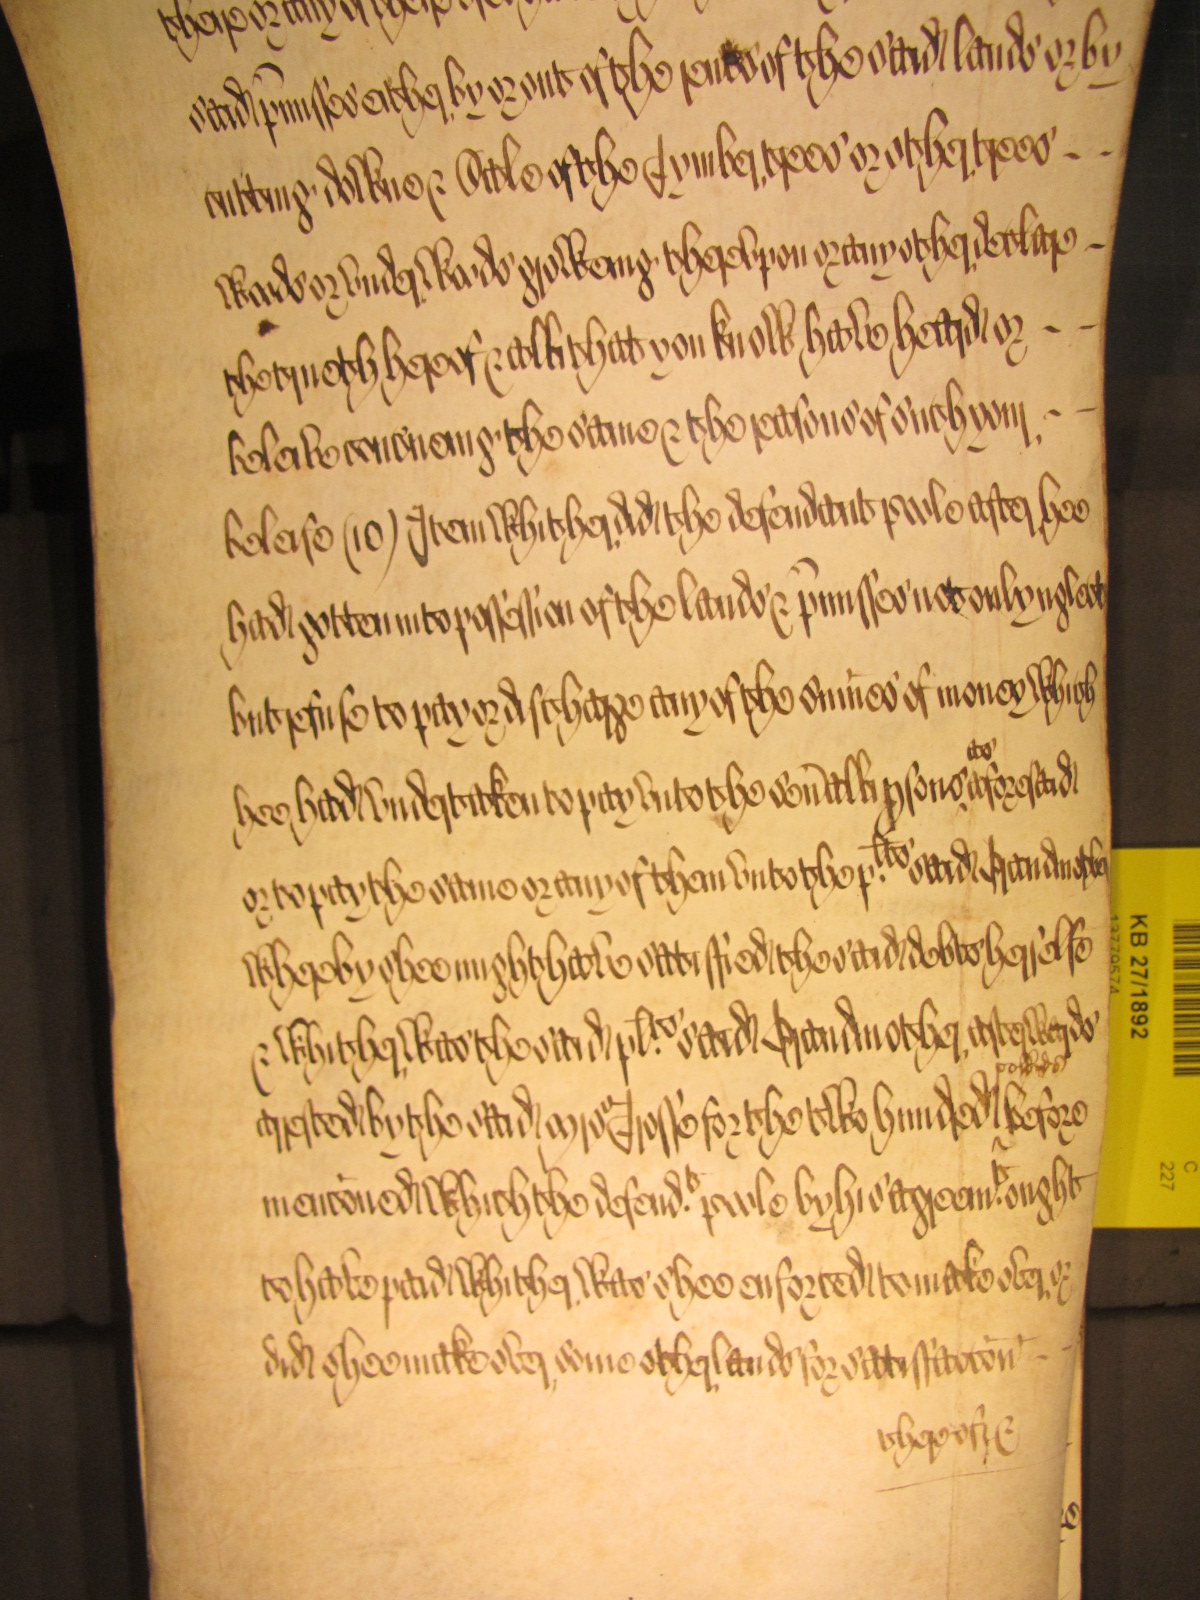 theire or any of theire
said p̄misses either by or out of the rents of the said lands or by
cutting downe & Sale of the Tymber trees or other trees - -
Woods or underwoods groweing thereupon or any other declare -
the trueth hereof & all that you know have heard or - -
beleive concerneing the same & the reasons of such your - -
beleife (10) Item whither did the defendant poole after hee
had gotten into possession of the lands & p̄misses not only neglect
but refuse to pay or discharge any of the sum̄es of money which
hee had undertaken to pay unto the sev̄all psons as aforesaid
or to pay the same or any of them unto the plts said Grandmother
whereby shee might have sattisfied the said debts herselfe
& whither was the said plts said Grandmother afterwards
arrested by the said Mrs Crosse for the two hundred pounds before
menc̄oned which the defendt poole by his agreemt ought
to have paid whither was shee enforced to make over or
did shee make over some other lands for sattisfacc̄on - -
thereof &
KB 27/1892
13779574
C
227